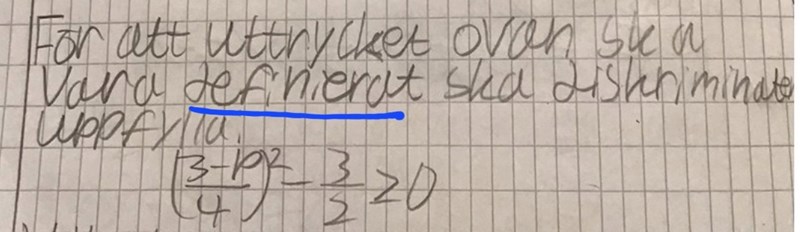 För att uttrycket ovan ska
vara definierat ska diskriminate
uppfylla:
(3-p/4)² - 3/2 ≥ 0